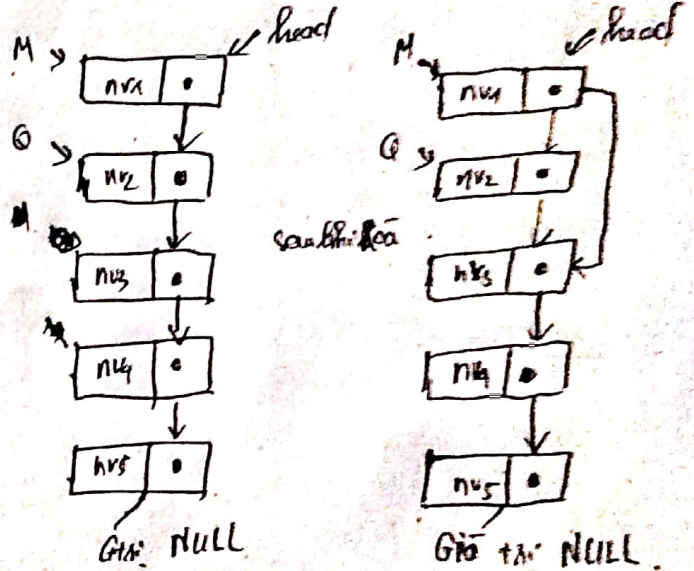 head
M
nv1
Q
nv2
nv3
nv4
nv5
NULL
sau khi xoá
head
M
nv1
Q
nv2
nv3
nv4
nv5
Giá trị NULL